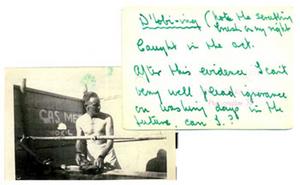 D'lobi-ing (Note the scrubbing
brush on my right
Caught in the act.
After this evidence I can't
very well plead ignorance
on washing days in the
future, can I?
GAS ME